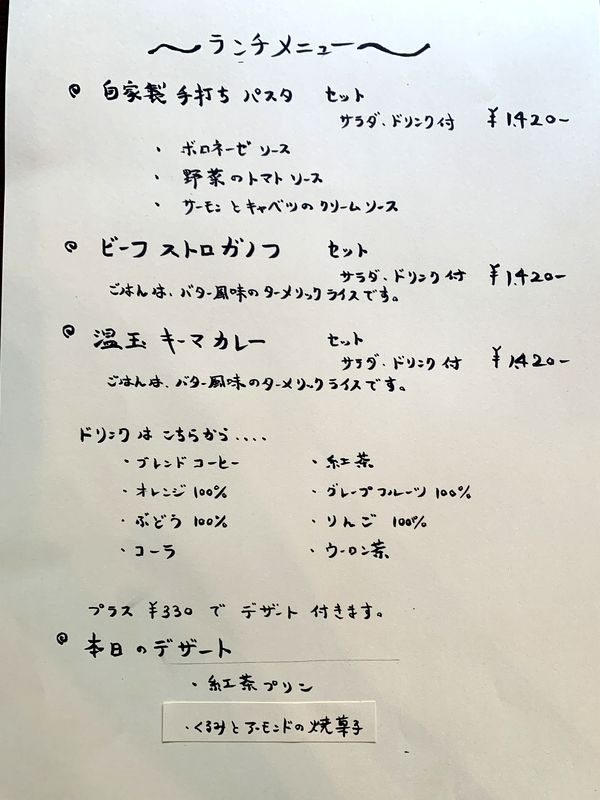 〜ランチメニュー〜
自家製 手打ち パスタ セット
サラダ、ドリンク付 ¥1,420-
・ボロネーゼ ソース
・野菜のトマト ソース
・サーモンとキャベツのクリームソース
ビーフ ストロガノフ セット
サラダ、ドリンク付 ¥1,420-
ごはんは、バター風味のターメリックライスです。
温玉 キーマ カレー セット
サラダ、ドリンク付 ¥1,420-
ごはんは、バター風味のターメリックライスです。
ドリンクはこちらから....
・ブレンド コーヒー ・紅茶
・オレンジ 100% ・グレープフルーツ 100%
・ぶどう 100% ・りんご 100%
・コーラ ・ウーロン茶
プラス ¥330 で デザート 付きます。
本日のデザート
・紅茶プリン
・くるみとアーモンドの焼菓子